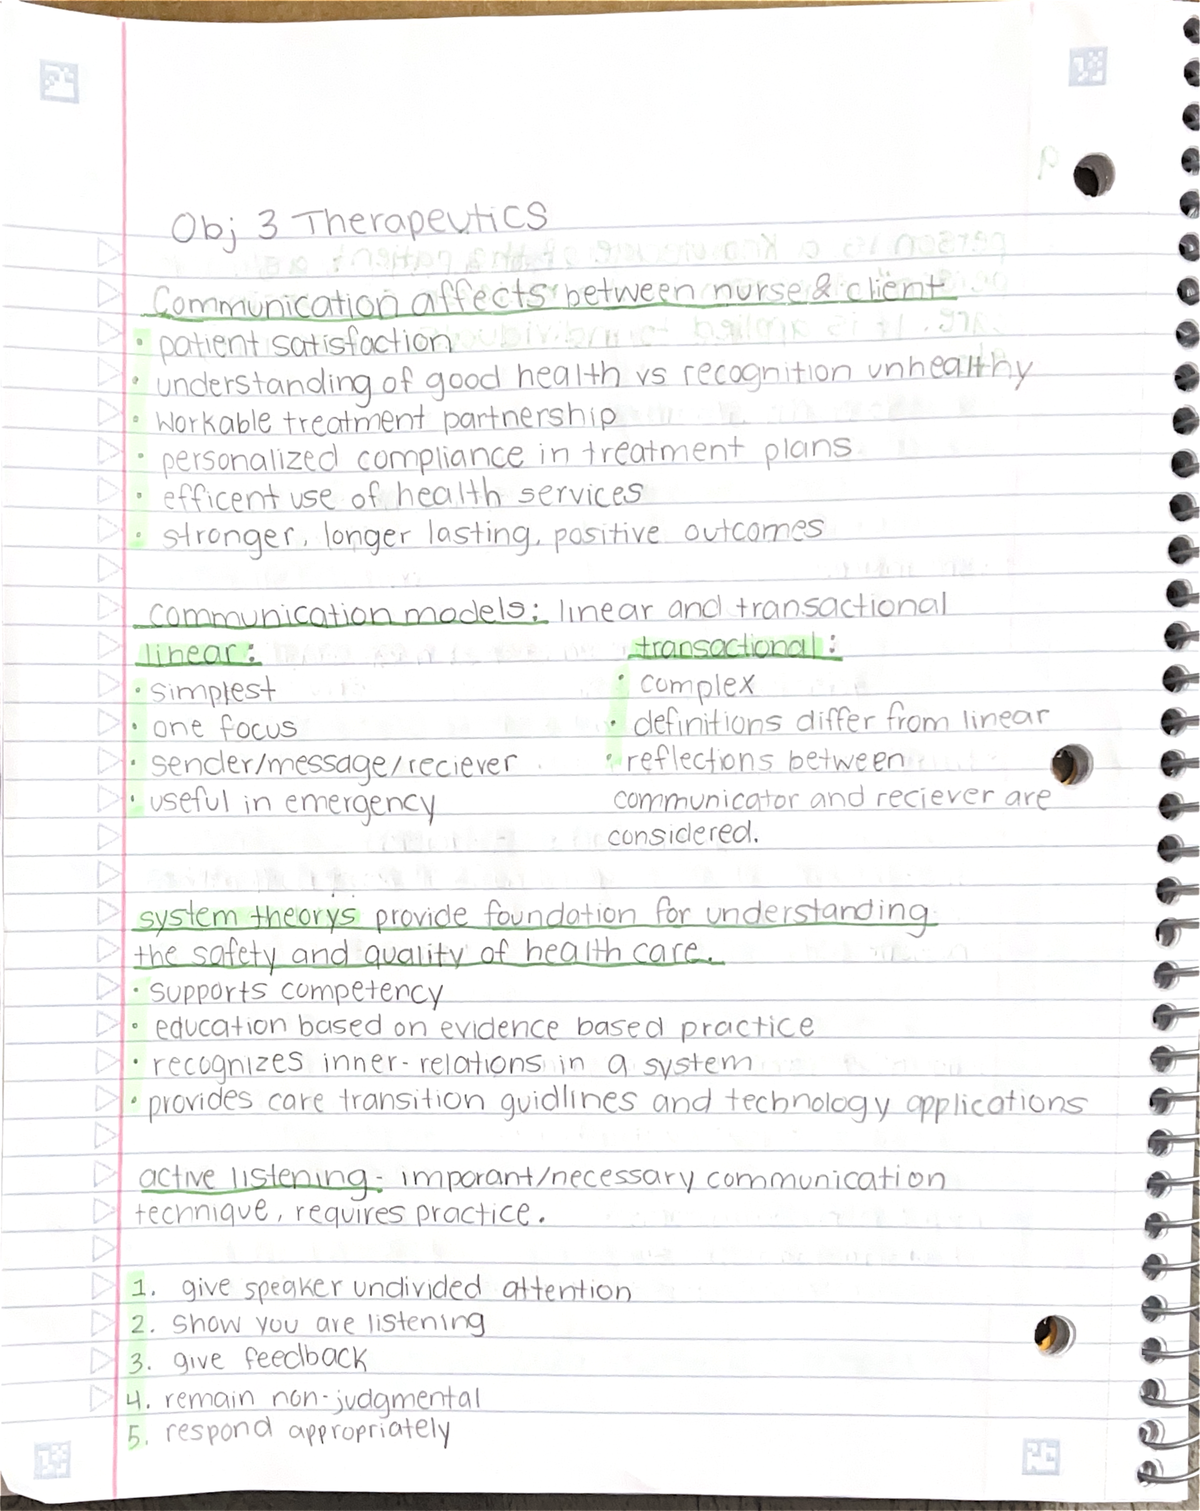 Obj 3 Therapeutics
Communication affects between nurse & client
• patient satisfaction
• understanding of good health vs recognition unhealthy
• workable treatment partnership
• personalized compliance in treatment plans
• efficent use of health services
• stronger, longer lasting, positive outcomes
communication models: linear and transactional
linear:
• simplest
• one focus
• sender/message/reciever
• useful in emergency
transactional:
• complex
• definitions differ from linear
• reflections between
communicator and reciever are
considered.
system theorys provide foundation for understanding
the safety and quality of health care.
• supports competency
• education based on evidence based practice
• recognizes inner-relations in a system
• provides care transition guidlines and technology applications
active listening - imporant/necessary communication
technique, requires practice.
1. give speaker undivided attention
2. show you are listening
3. give feedback
4. remain non-judgmental
5. respond appropriately